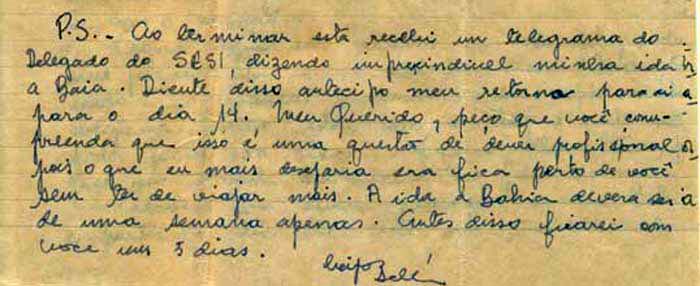 P.S.- Ao terminar esta recebi um telegrama do
Delegado do SESI, dizendo imprecindivel minha ida
a Baia. Diente disso antecipo meu retorno para ai
para o dia 14. Meu Querido, peço que você com-
preenda que isso é uma questão de dever profissional
pois o que eu mais desejaria era fica perto de você
sem ter de viajar mais. A ida a Bahia devera ser
de uma semana apenas. Antes disso ficarei com
voce uns 5 dias.